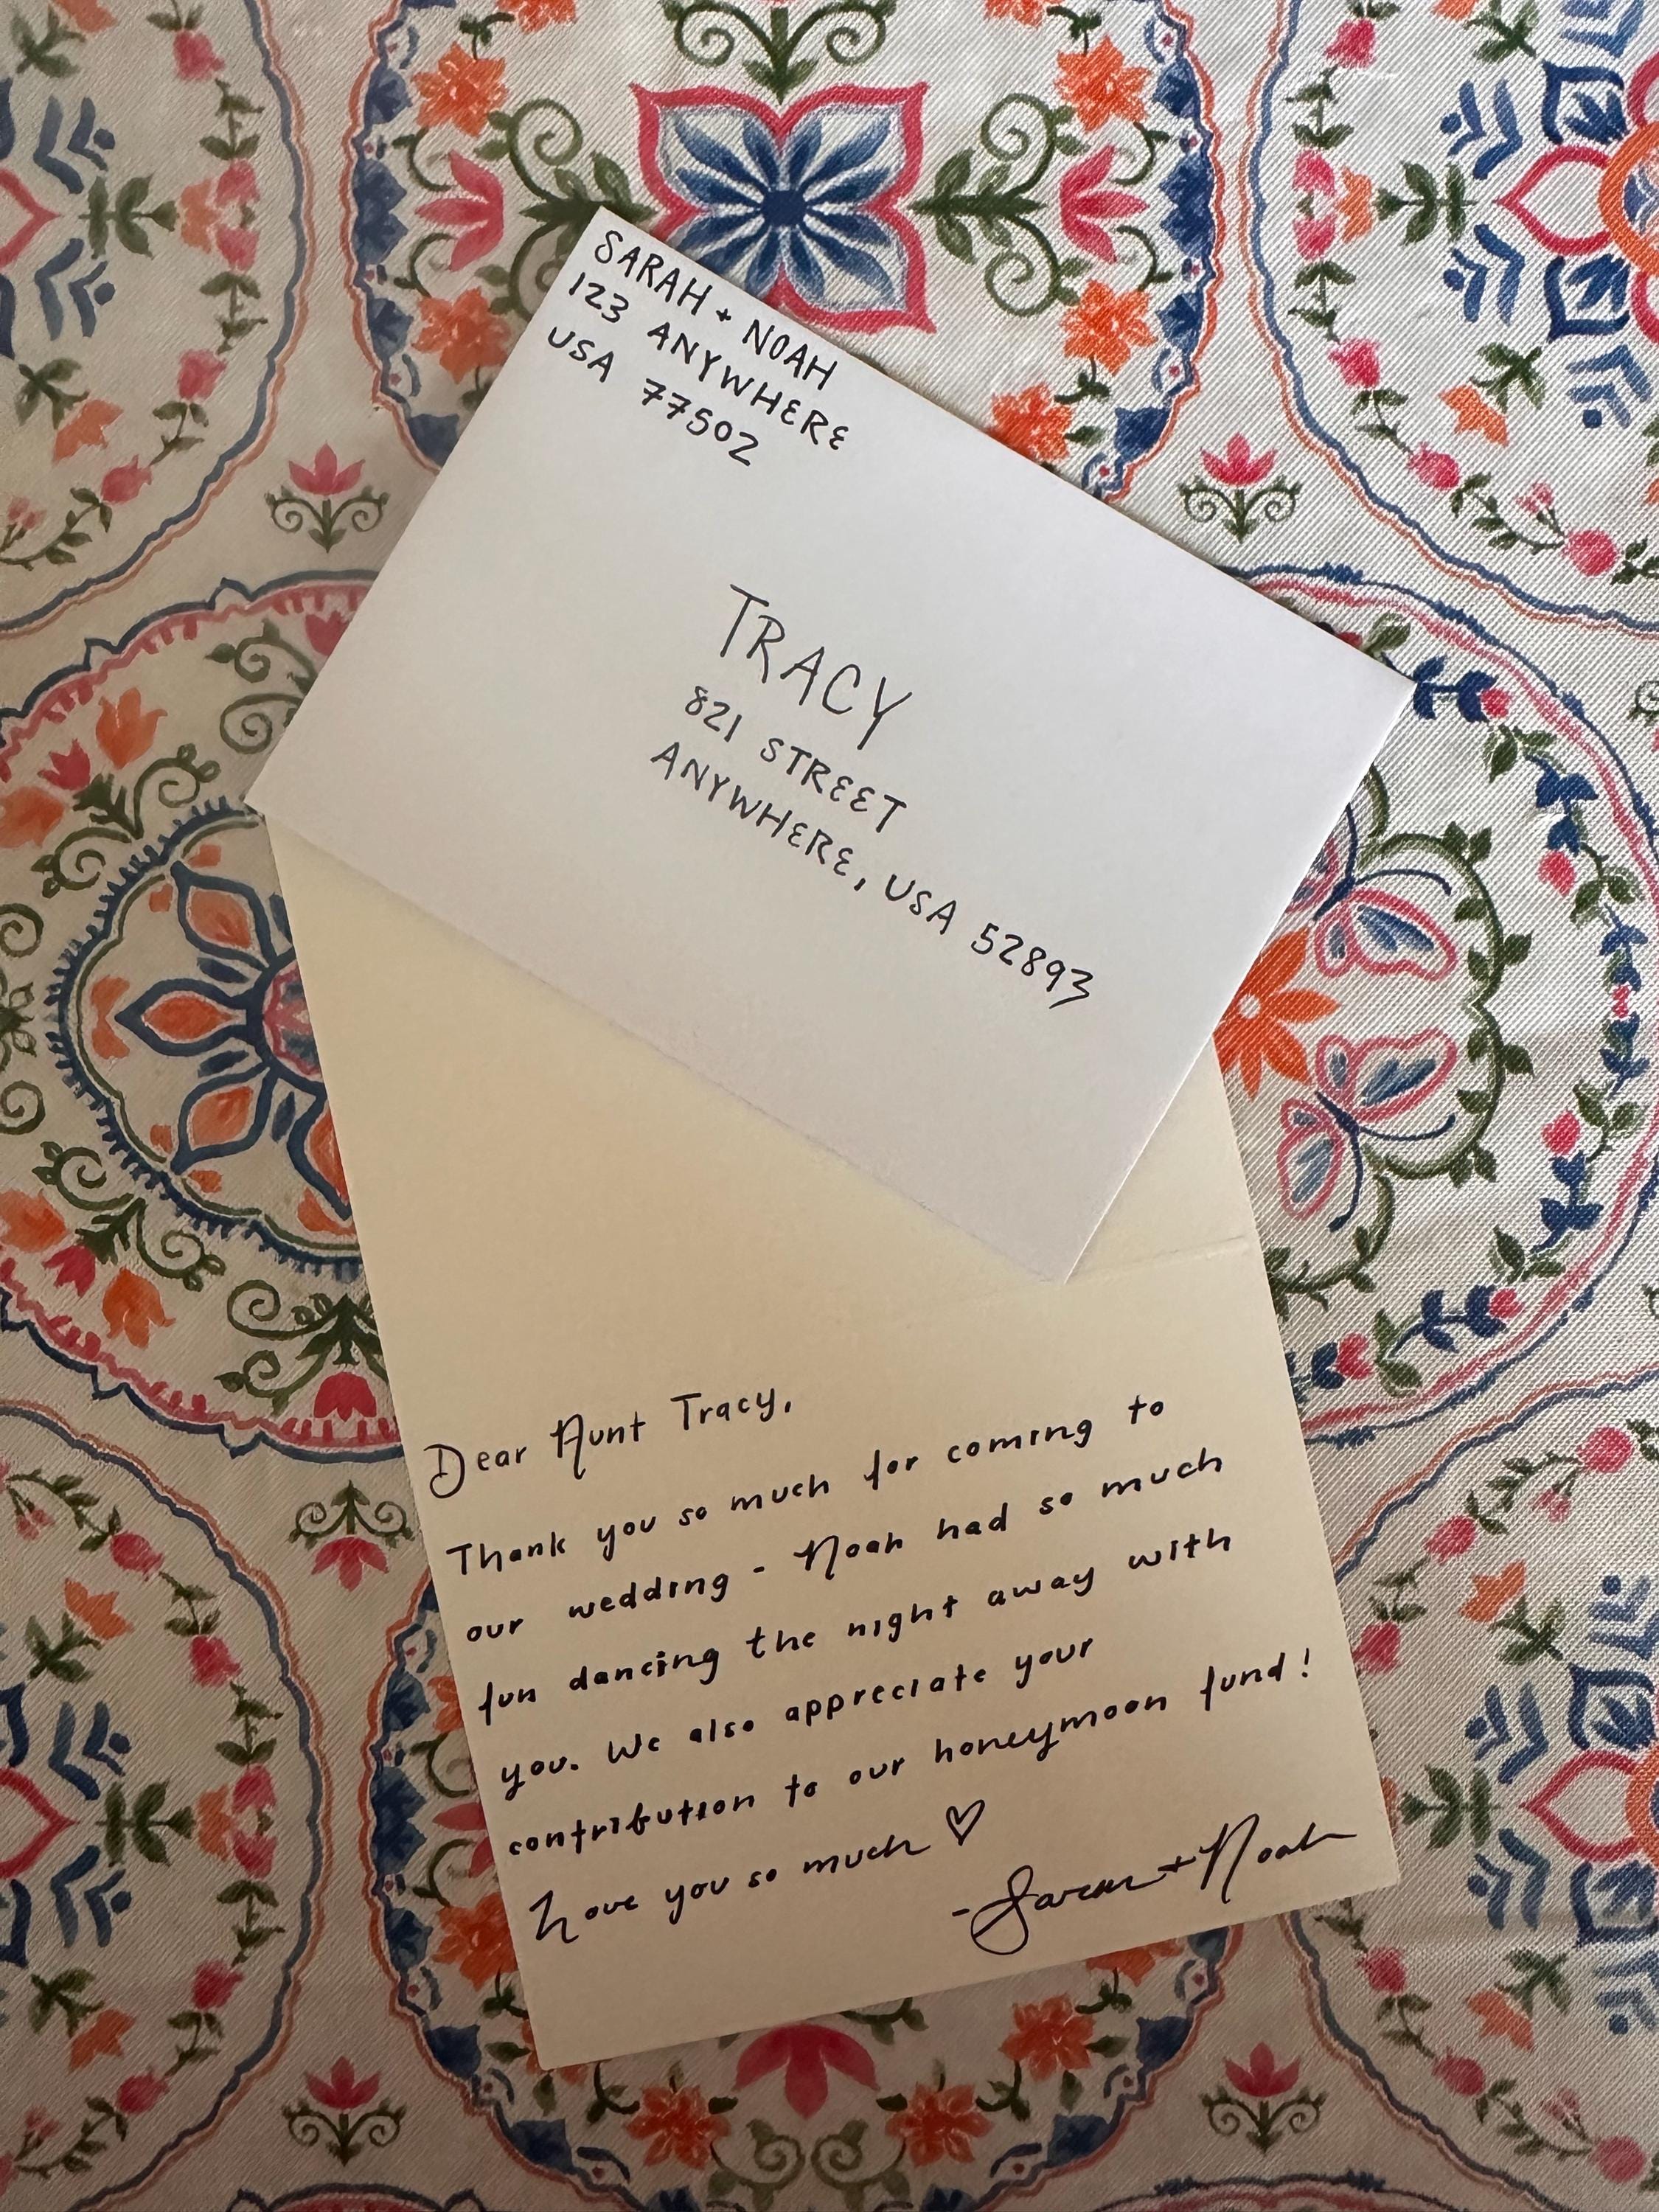 SARAH + NOAH
123 ANYWHERE
USA 77502
TRACY
821 STREET
ANYWHERE, USA 52893
Dear Aunt Tracy,
Thank you so much for coming to
our wedding - Noah had so much
fun dancing the night away with
you. We also appreciate your
contribution to our honeymoon fund!
Love you so much ♡
- Sarah + Noah